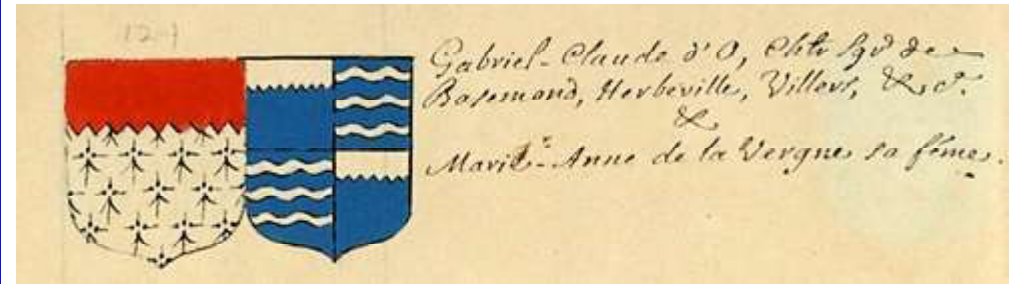 124
Gabriel-Claude d'O, Chlr Sgr de
Basemond, Herbeville, Villers, &c.ª
&
Marie-Anne de la Vergne sa fême.